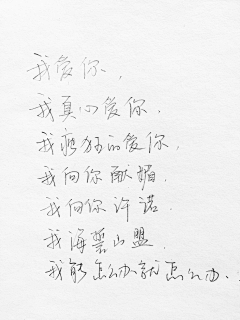 我爱你，
我真心爱你．
我疯狂的爱你，
我向你献媚．
我向你许诺．
我海誓山盟．
我能怎么办就怎么办．